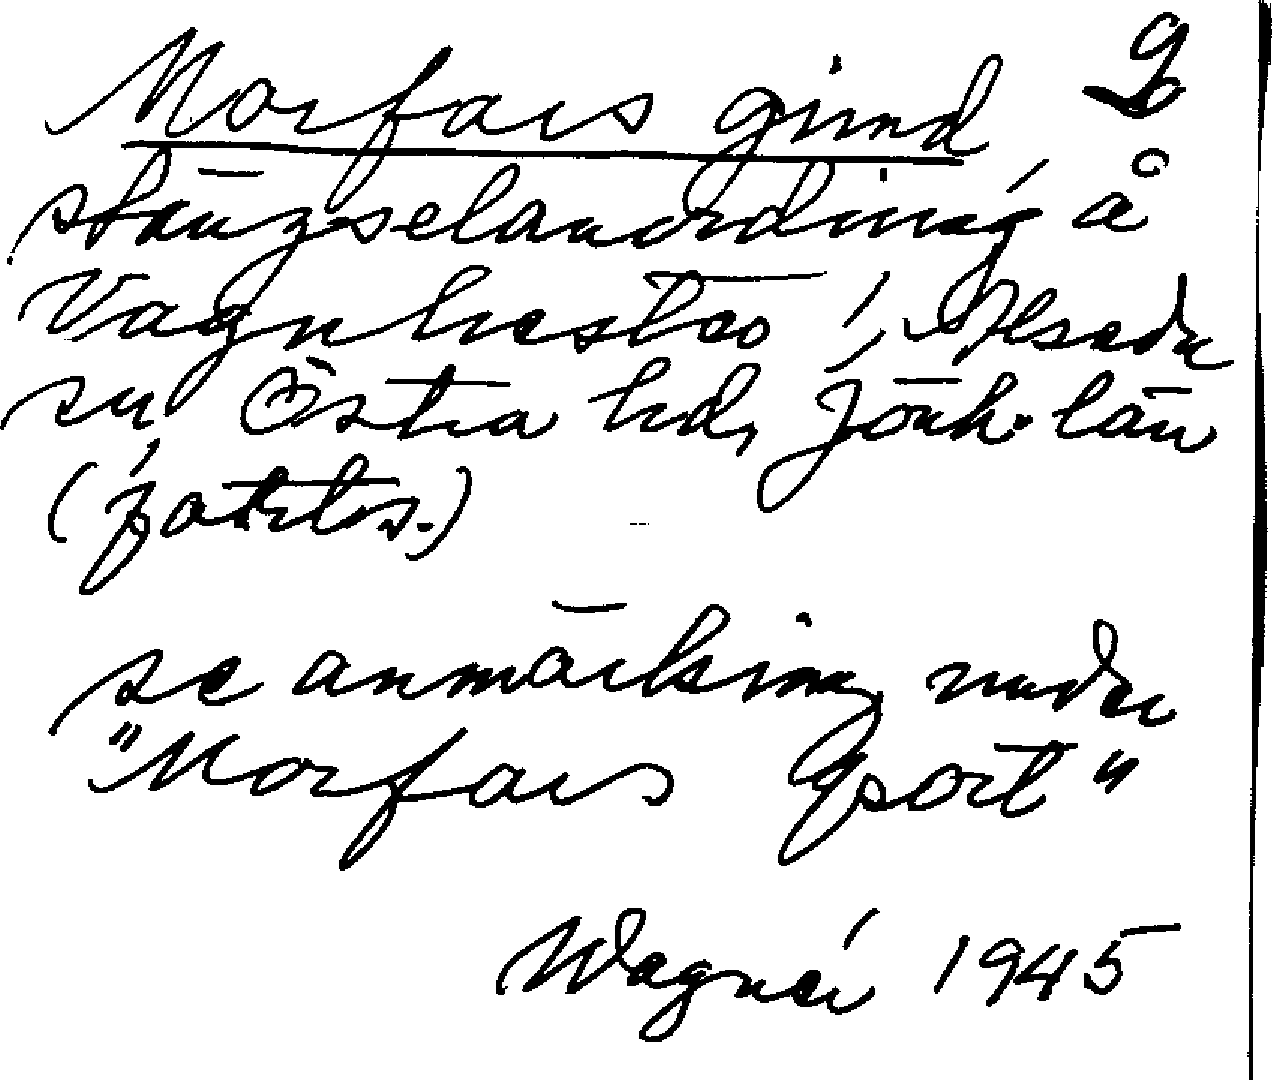 Morfars grind
stängselanordning å
Vagnhester i Alseda
sn, Östra hd, Jönk. län
se anmärkning under
"Morfars port"
Wagnér 1945